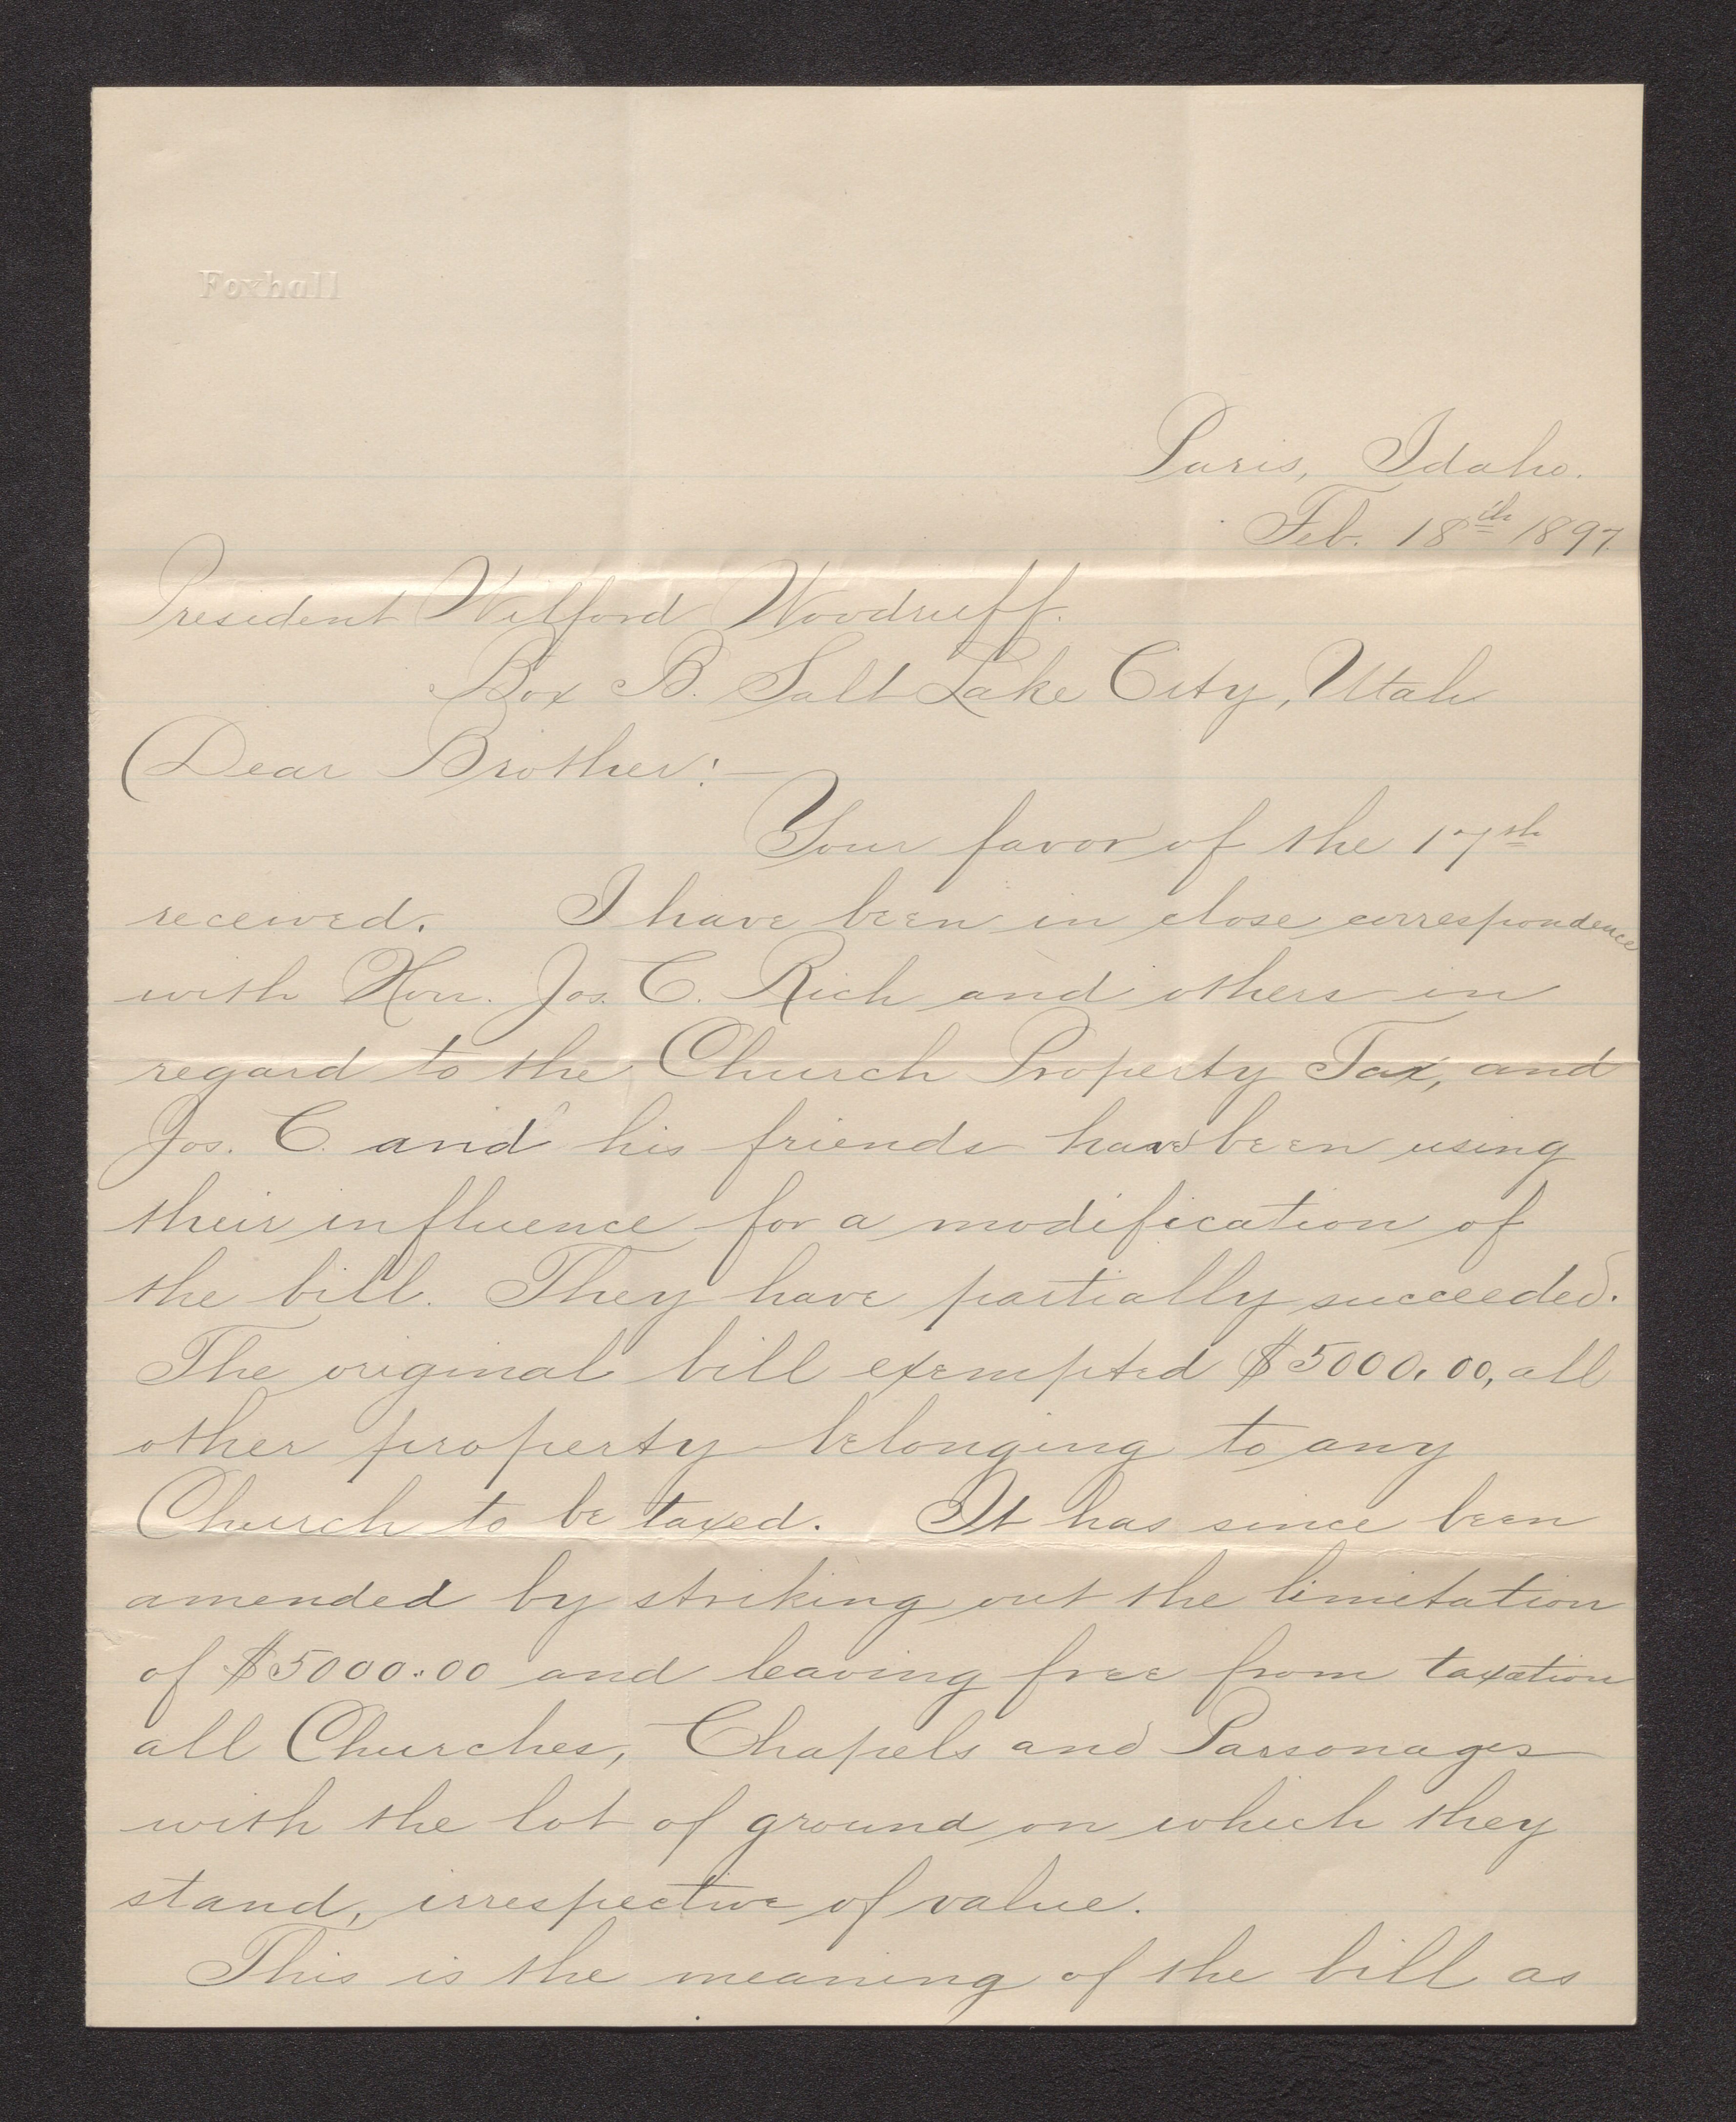 Foxhall
Paris, Idaho.
Feb. 18th 1897.
President Wilford Woodruff.
Box B. Salt Lake City, Utah
Dear Brother:—
Your favor of the 17th
received. I have been in close correspondence
with Hon. Jos. C. Rich and others in
regard to the Church Property Tax, and
Jos. C. and his friends have been using
their influence for a modification of
the bill. They have partially succeeded.
The original bill exempted $5000.00, all
other property belonging to any
Church to be taxed. It has since been
amended by striking out the limitation
of $5000.00 and leaving free from taxation
all Churches, Chapels and Parsonages
with the lot of ground on which they
stand, irrespective of value.
This is the meaning of the bill as